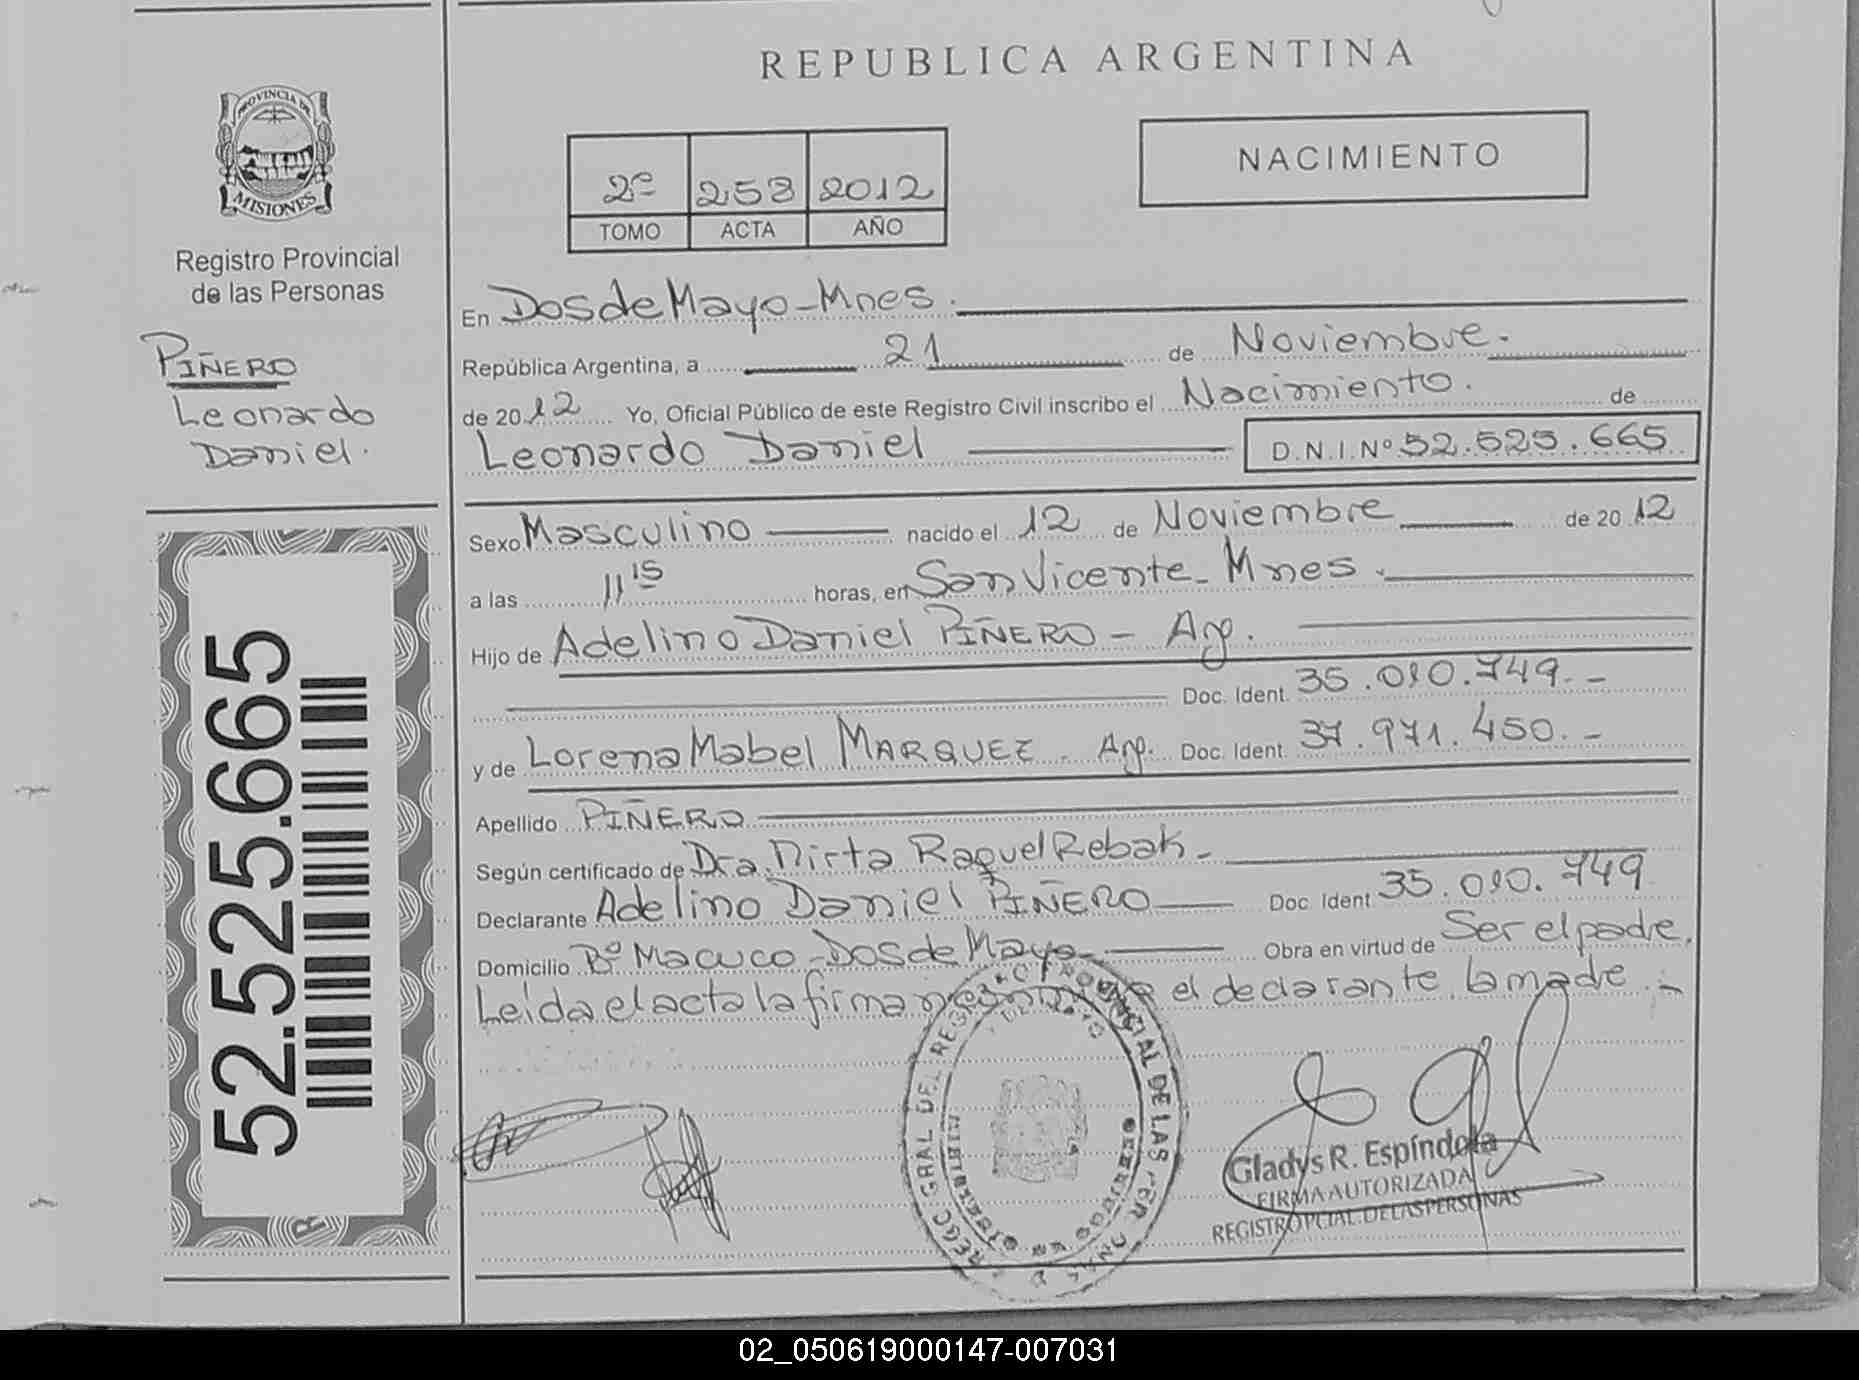 REPUBLICA ARGENTINA
PROVINCIA DE
MISIONES
Registro Provincial
de las Personas
PIÑERO
Leonardo
Daniel.
52.525.665
2º 258 2012
TOMO ACTA AÑO
NACIMIENTO
En Dos de Mayo - Mnes.
República Argentina, a 21 de Noviembre.
de 2012 Yo, Oficial Público de este Registro Civil inscribo el Nacimiento. de
Leonardo Daniel D.N.I.Nº 52.525.665
Sexo Masculino nacido el 12 de Noviembre de 2012
a las 11 15 horas, en San Vicente - Mnes.
Hijo de Adelino Daniel PIÑERO - Arg.
Doc. Ident. 35.010.749.-
y de Lorena Mabel MARQUEZ - Arg. Doc. Ident. 37.971.450.-
Apellido PIÑERO
Según certificado de Dra. Mirta Raquel Rebak -
Declarante Adelino Daniel PIÑERO Doc. Ident 35.010.749
Domicilio Bº Macuco - Dos de Mayo Obra en virtud de Ser el padre.
Leída el acta la firman el declarante la madre.-
Gladys R. Espíndola
FIRMA AUTORIZADA
REGISTRO PCIAL. DE LAS PERSONAS
02_050619000147-007031